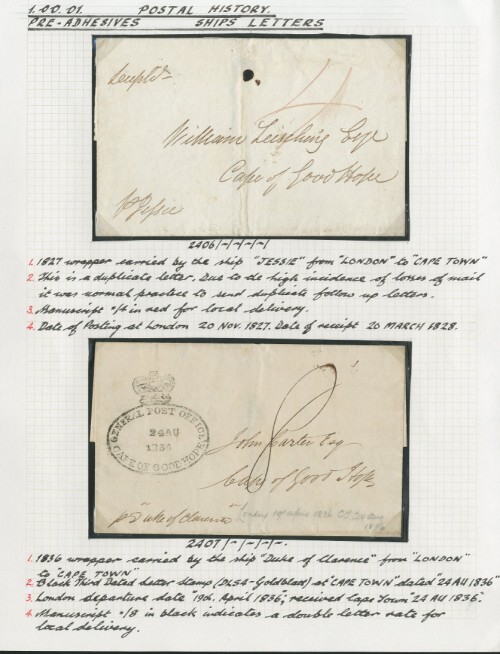 1.00.01. POSTAL HISTORY.
PRE-ADHESIVES SHIPS LETTERS
William Leishing Esqe
Cape of Good Hope
pr Jessie
2406/-/-/-/-/
1. 1827 wrapper carried by the ship "JESSIE" from "LONDON" to "CAPE TOWN"
2. This is a duplicate letter. Due to the high incidence of losses of mail
it was normal practice to send duplicate follow up letters.
3. Manuscript "/4 in red for local delivery.
4. Date of Posting at London 20 NOV. 1827. Date of receipt 20 MARCH 1828.
GENERAL POST OFFICE
24AU
1836
CAPE OF GOOD HOPE
John Carter Esq
Cape of Good Hope
8
pr "Duke of Clarence"
2407/-/-/-/-.
1. 1836 wrapper carried by the ship "Duke of Clarence" from "LONDON"
to "CAPE TOWN"
2. Black Third Dated Letter Stamp (DLS4-Goldblatt) at "CAPE TOWN" dated "24 AU 1836"
3. London departure date "19th. April 1836", received Cape Town "24 AU 1836".
4. Manuscript "/8 in black indicates a double letter rate for
local delivery.